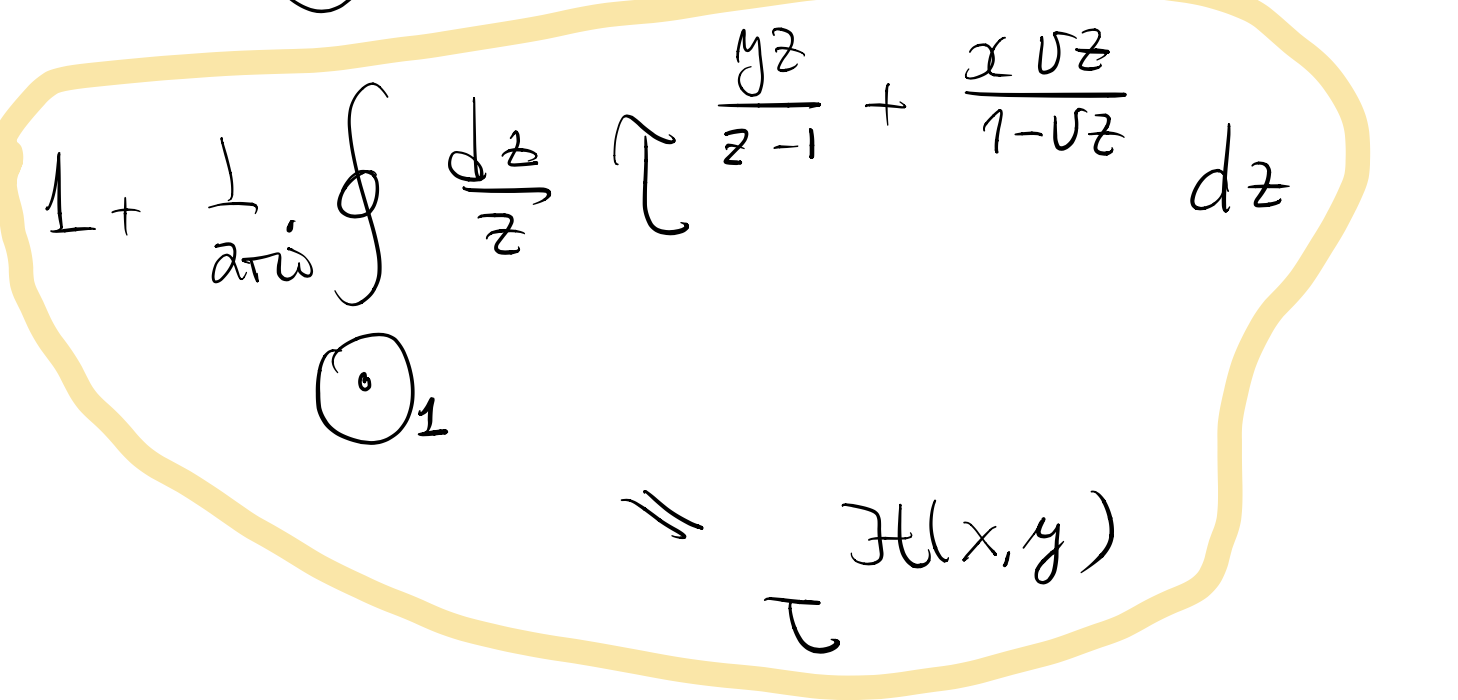 1 + \frac{1}{2\pi i} \oint \frac{dz}{z} \tau^{\frac{yz}{z-1} + \frac{x v z}{1-vz}} dz
1
= \tau^{H(x,y)}